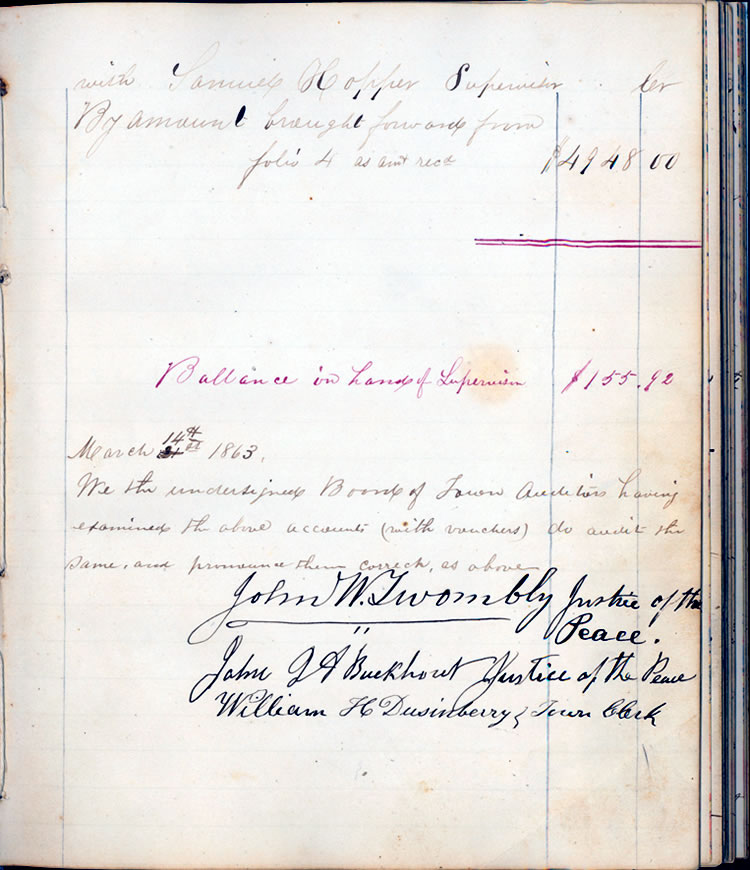 with Samuel Hopper Supervisor Cr
By amount brought forward from
folio 4 as amt recd $4948 00
Ballance in hand of Supervisor $155.92
March 14th 1863.
We the undersigned Board of Town Auditors having
examined the above accounts (with vouchers) do audit the
same, and pronounce them correct, as above
John W. Twombly Justice of the
Peace.
John I A Buckhout Justice of the Peace
William H Dusinberry, Town Clerk